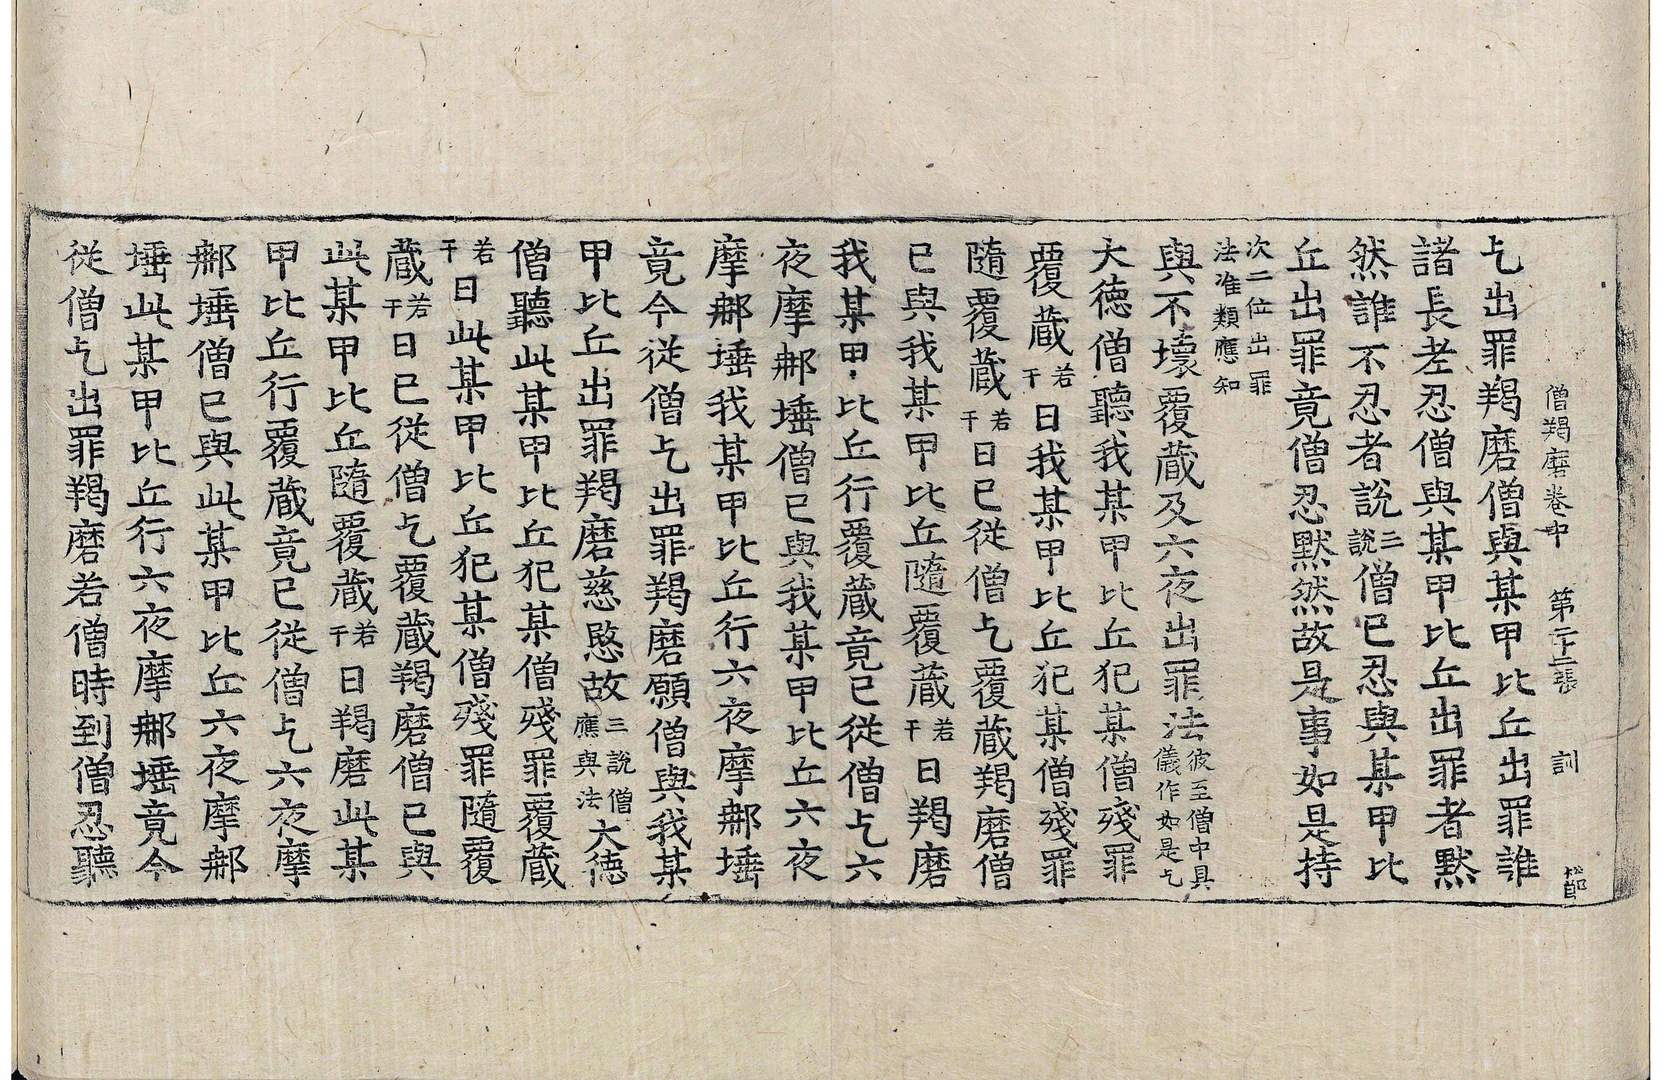 僧羯磨卷中 第二十三張 訓
乞出罪羯磨僧與某甲比丘出罪誰
諸長老忍僧與某甲比丘出罪者默
然誰不忍者說三說僧已忍與某甲比
丘出罪竟僧忍默然故是事如是持
次二位出罪
法准類應知
與不壞覆藏及六夜出罪法彼至僧中具儀作如是乞
大德僧聽我某甲比丘犯某僧殘罪
覆藏若干日我某甲比丘犯某僧殘罪
隨覆藏若干日已從僧乞覆藏羯磨僧
已與我某甲比丘隨覆藏若干日羯磨
我某甲比丘行覆藏竟已從僧乞六
夜摩那埵僧已與我某甲比丘六夜
摩那埵我某甲比丘行六夜摩那埵
竟今從僧乞出罪羯磨願僧與我某
甲比丘出罪羯磨慈愍故三說僧應與法大德
僧聽此某甲比丘犯某僧殘罪覆藏
若干日此某甲比丘犯某僧殘罪隨覆
藏若干日已從僧乞覆藏羯磨僧已與
此某甲比丘隨覆藏若干日羯磨此某
甲比丘行覆藏竟已從僧乞六夜摩
那埵僧已與此某甲比丘六夜摩那
埵此某甲比丘行六夜摩那埵竟今
從僧乞出罪羯磨若僧時到僧忍聽